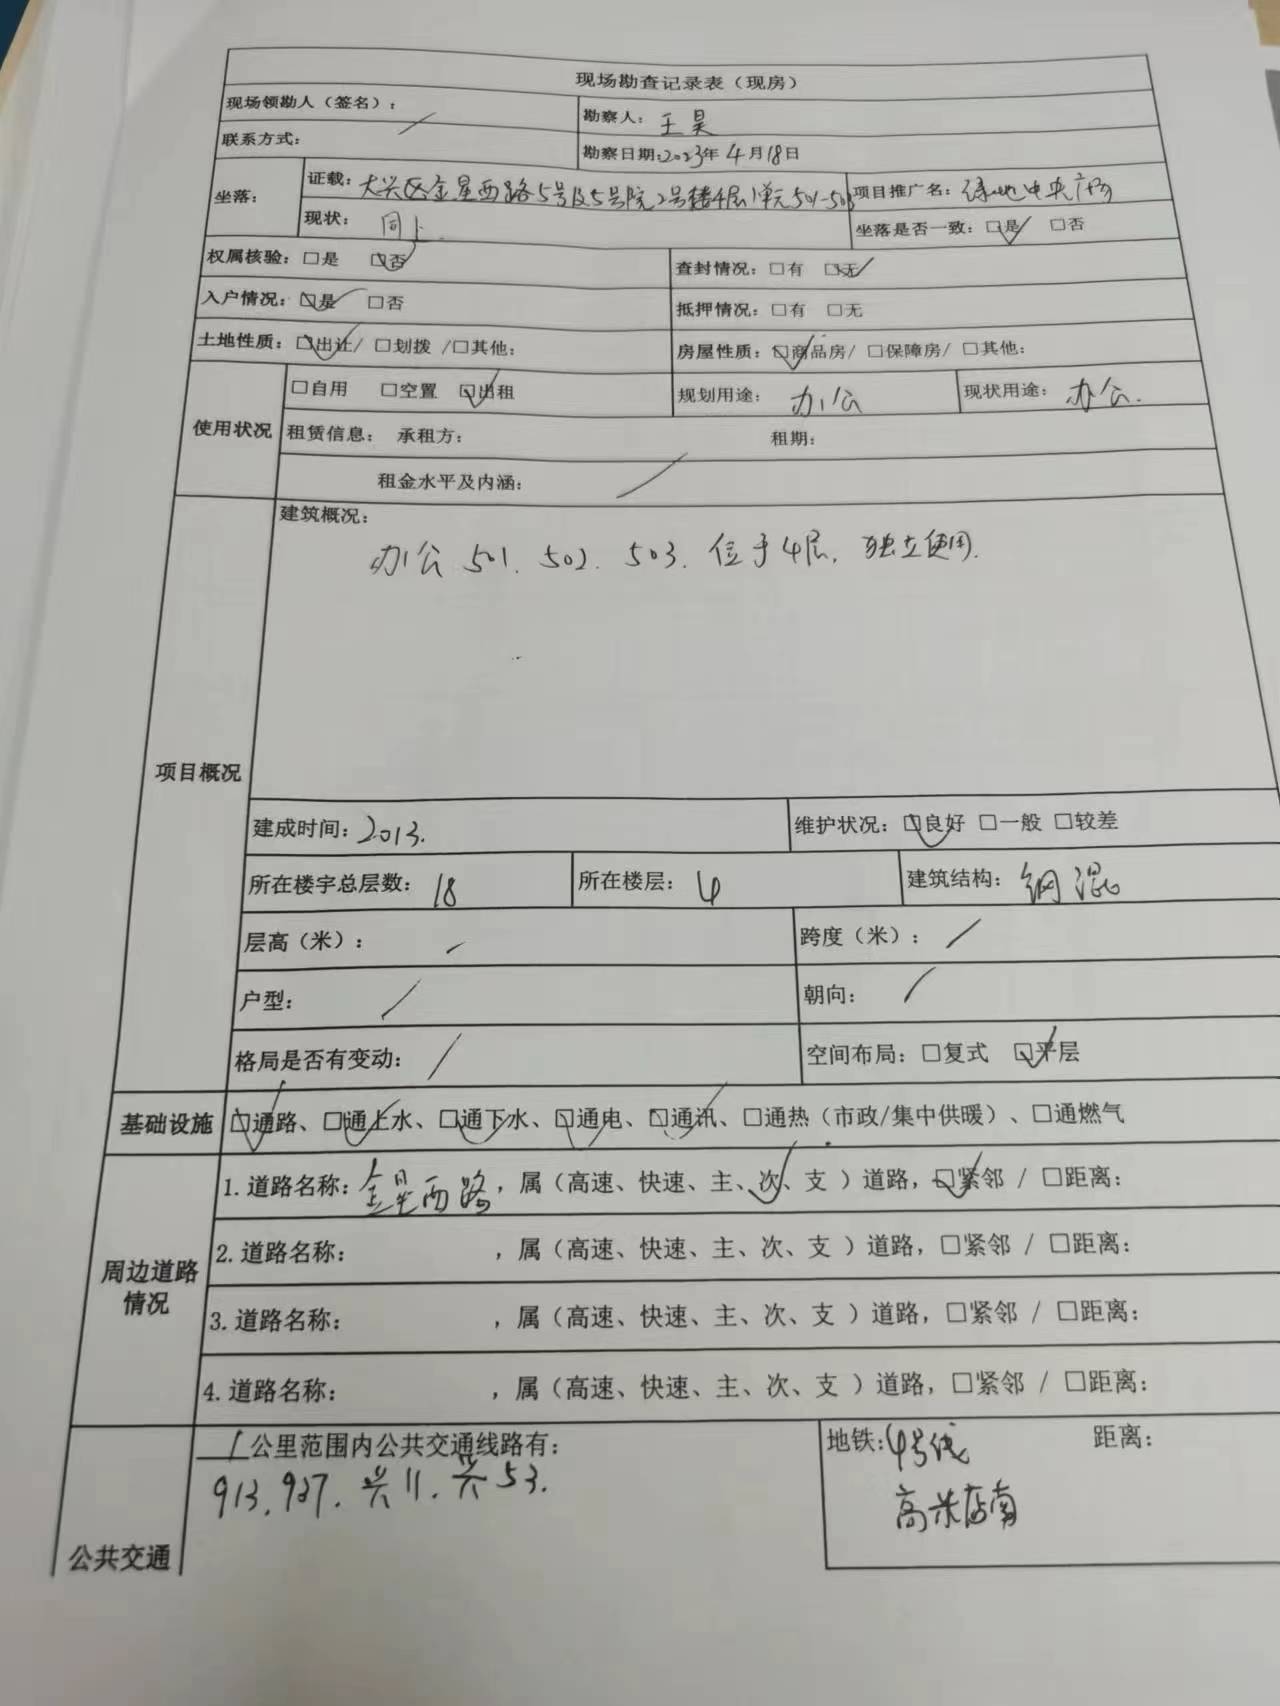 现场勘查记录表（现房）
现场领勘人（签名）： 勘察人：王昊
联系方式： 勘察日期：2023年4月18日
坐落： 证载：大兴区金星西路5号及5号院2号楼4层1单元501-503 项目推广名：绿地中央广场
现状：同上 坐落是否一致：☑是 □否
权属核验：□是 ☑否 查封情况：□有 ☑无
入户情况：☑是 □否 抵押情况：□有 □无
土地性质：☑出让/ □划拨 /□其他： 房屋性质：☑商品房/ □保障房/ □其他：
使用状况 □自用 □空置 ☑出租 规划用途：办公 现状用途：办公.
租赁信息： 承租方： 租期：
租金水平及内涵： /
项目概况 建筑概况：
办公 501. 502. 503. 位于4层. 独立使用.
建成时间：2013. 维护状况：☑良好 □一般 □较差
所在楼宇总层数：18 所在楼层：4 建筑结构：钢混
层高（米）： / 跨度（米）： /
户型： / 朝向： /
格局是否有变动： / 空间布局：□复式 ☑平层
基础设施 ☑通路、☑通上水、☑通下水、☑通电、☑通讯、□通热（市政/集中供暖）、□通燃气
周边道路情况
1.道路名称：金星西路，属（高速、快速、主、次✓、支 ）道路，☑紧邻 / □距离：
2.道路名称： ，属（高速、快速、主、次、支 ）道路，□紧邻 / □距离：
3.道路名称： ，属（高速、快速、主、次、支 ）道路，□紧邻 / □距离：
4.道路名称： ，属（高速、快速、主、次、支 ）道路，□紧邻 / □距离：
公共交通 1公里范围内公共交通线路有： 地铁：4号线 距离：
913. 937. 兴11. 兴53. 高米店南